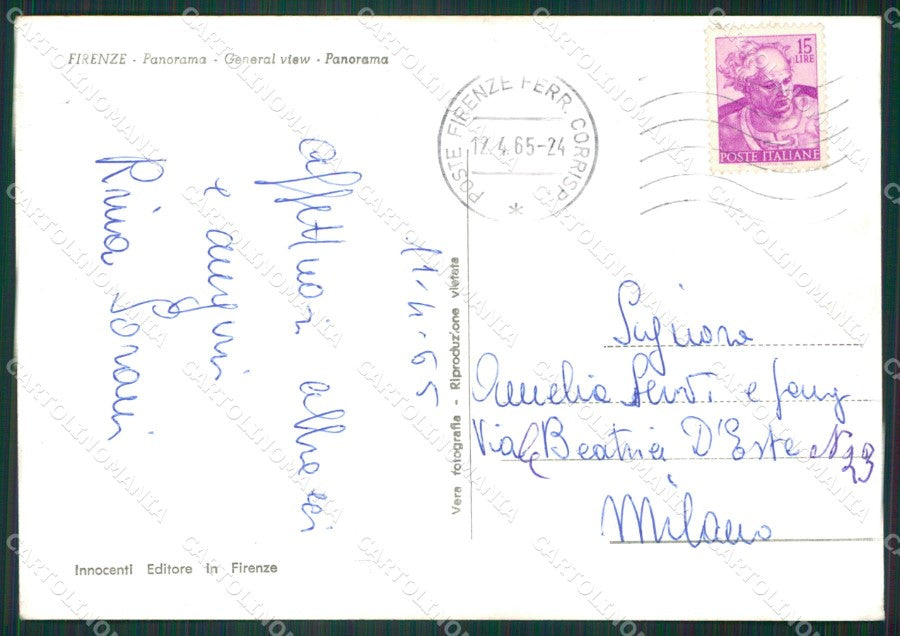 FIRENZE - Panorama - General view - Panorama
POSTE FIRENZE FERR. CORRISP.
12.4.65-24
*
15
LIRE
POSTE ITALIANE
11.4.65
affettuosi abbracci
e auguri
Rina
Vera fotografia - Riproduzione vietata
Signora
Amelia e fam
Viale Beatrice D'Este N 23
Milano
Innocenti Editore in Firenze
CARTOLINOMANIA